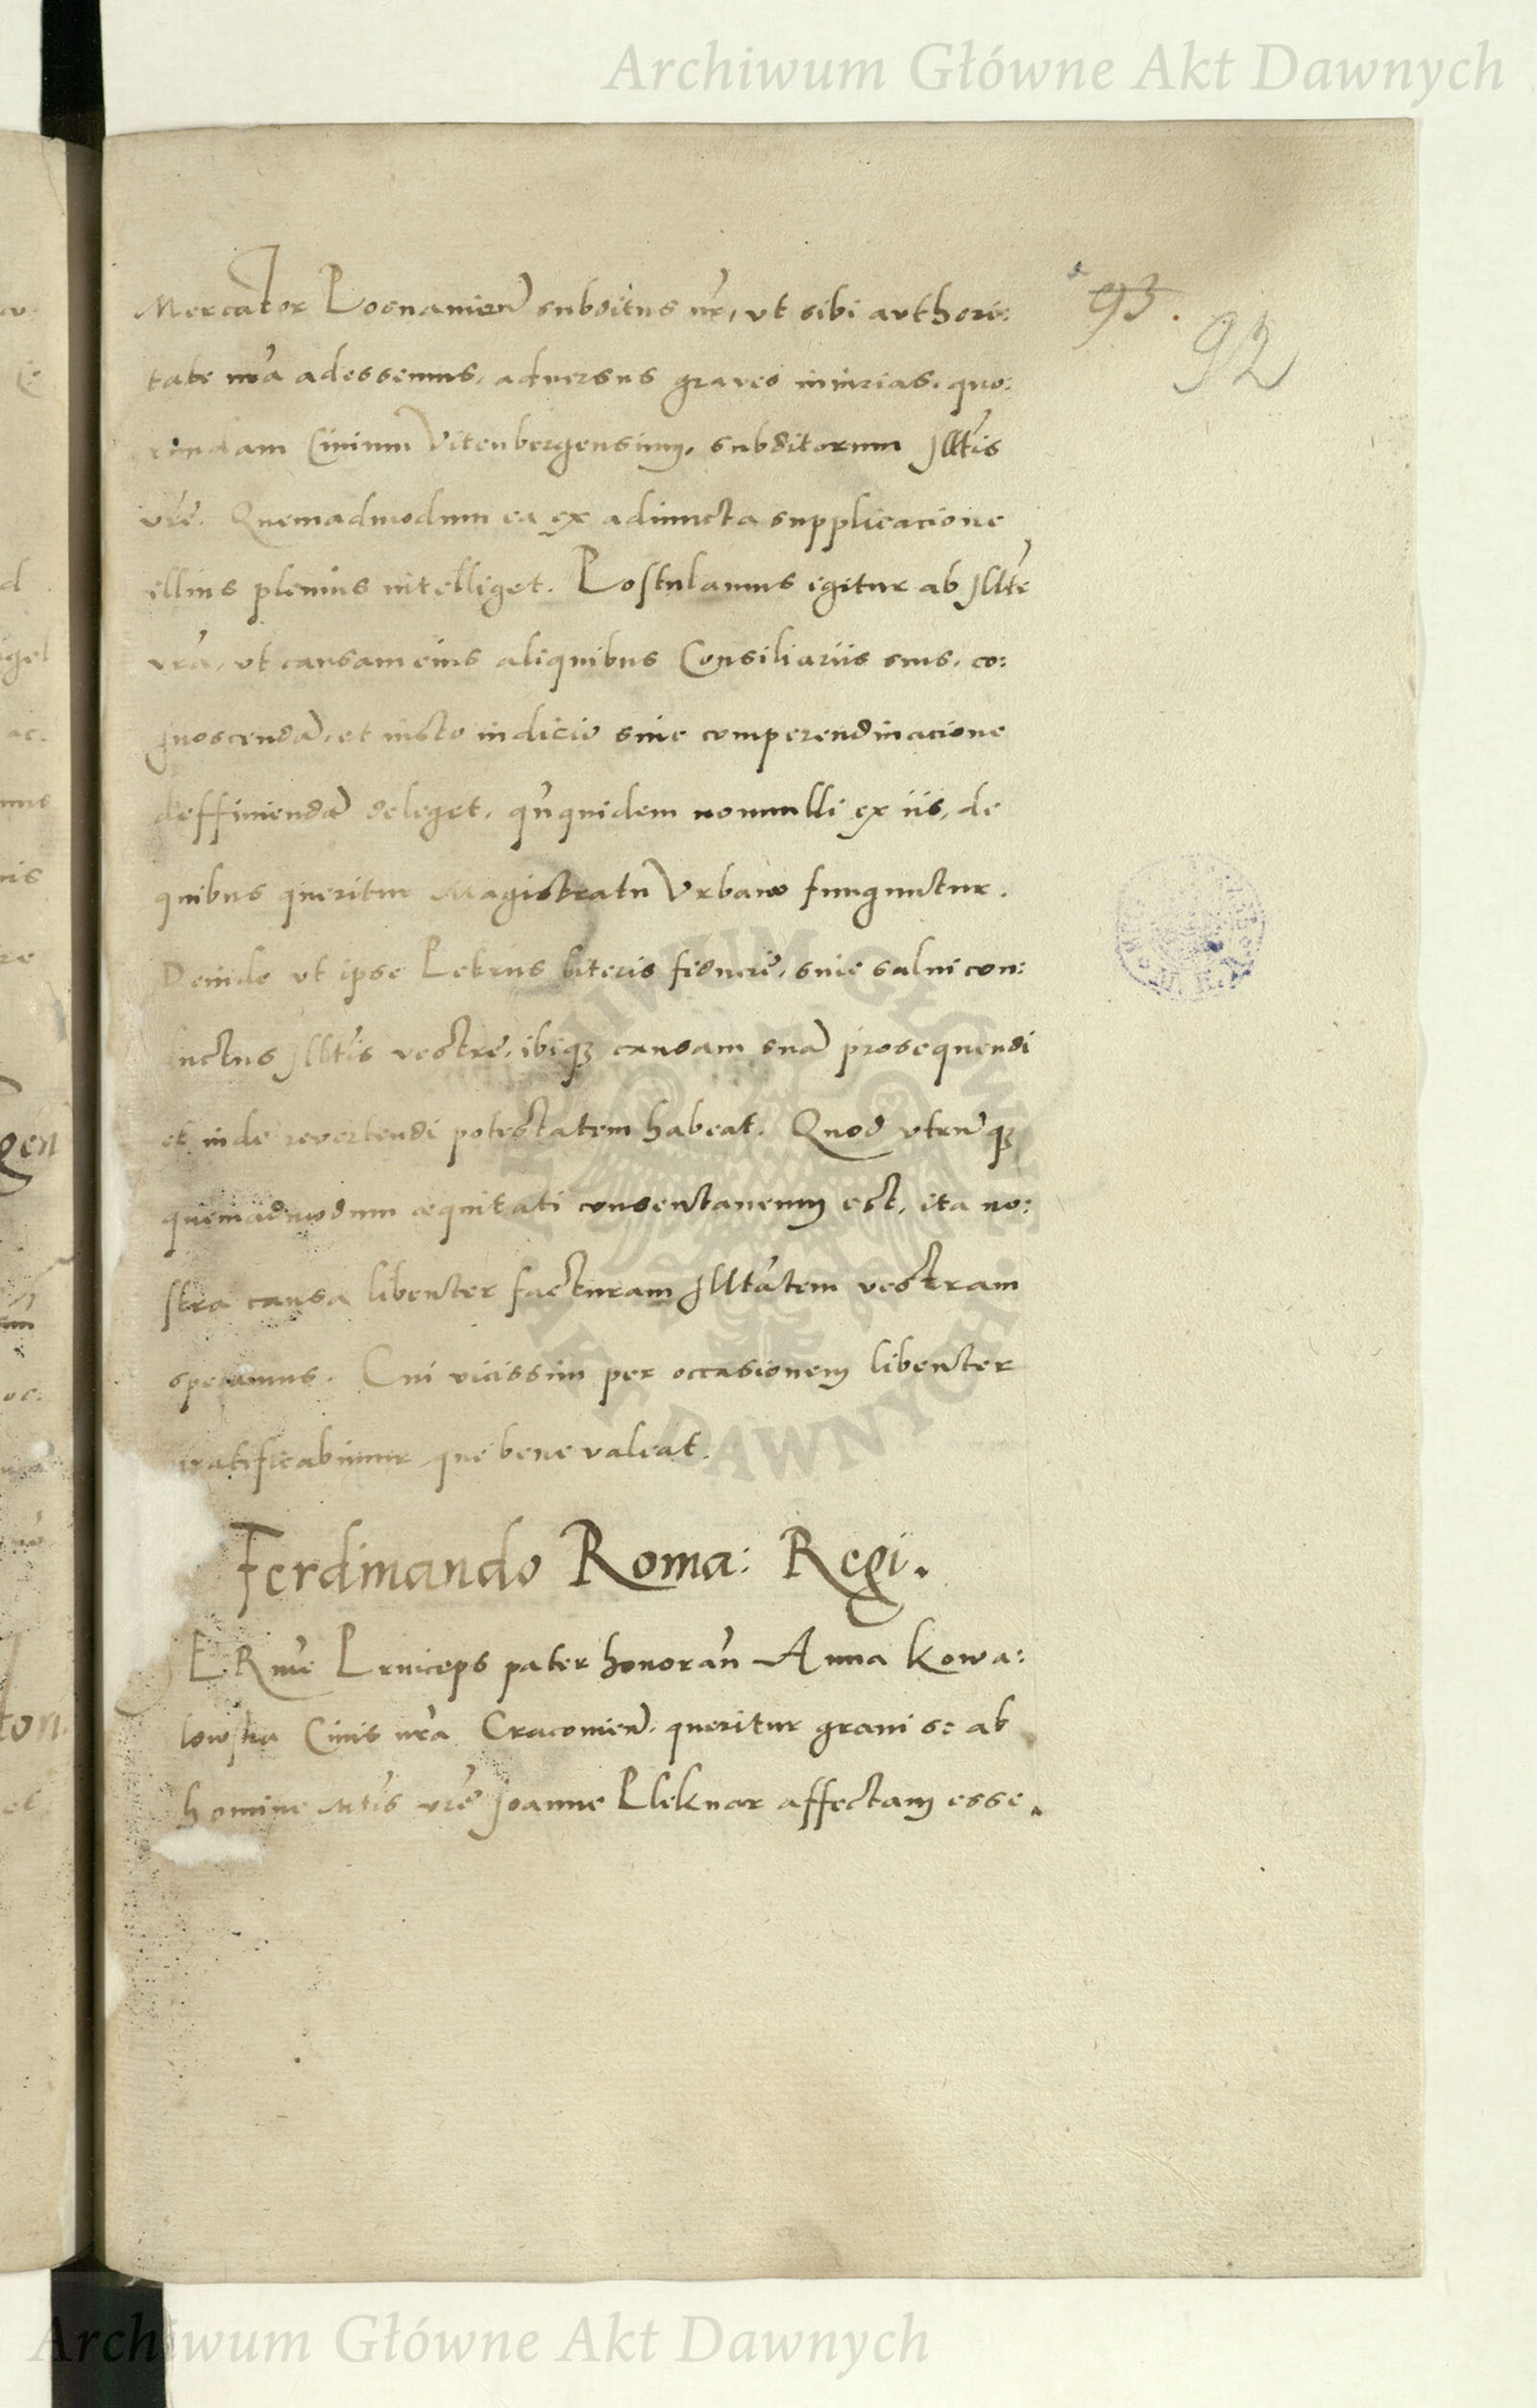 Archiwum Główne Akt Dawnych
93.
92
Mercator Posnanien subditus nr, ut sibi authori:
tate nra adessemus, adversus graves iniurias, quo:
rundam Civium Vitenbergensium, subditorum Illtis
vre. Quemadmodum ea ex adiuncta supplicacione
illius plenius intelliget. Postulamus igitur ab Illte
vra, ut causam eius aliquibus Consiliariis suis, co:
gnoscendã, et iusto iudicio sine comperendinacione
deffiniendã deleget, qñquidem nonnulli ex iis, de
quibus queritur Magistratu Urbano funguntur.
Deinde ut ipse Petrus literis fiducie, sive salvi con:
ductus Illtis vestre, ibiqꝫ causam suã prosequendi
et inde revertendi potestatem habeat. Quod utrũqꝫ
quemadmodum æquitati consentaneum est, ita no:
stra causa libenter facturam Illtatem vestram
speramus. Cui vicissim per occasionem libenter
gratificabimur que bene valeat.
Ferdinando Roma: Regi.
Princeps pater honoran Anna Kowa:
lowska Civis nra Cracovien, queritur gravi se ab
homine Mtis vre Joanne Pleknar affectam esse
ARCHIWUM GŁÓWNE AKT DAWNYCH
Archiwum Główne Akt Dawnych